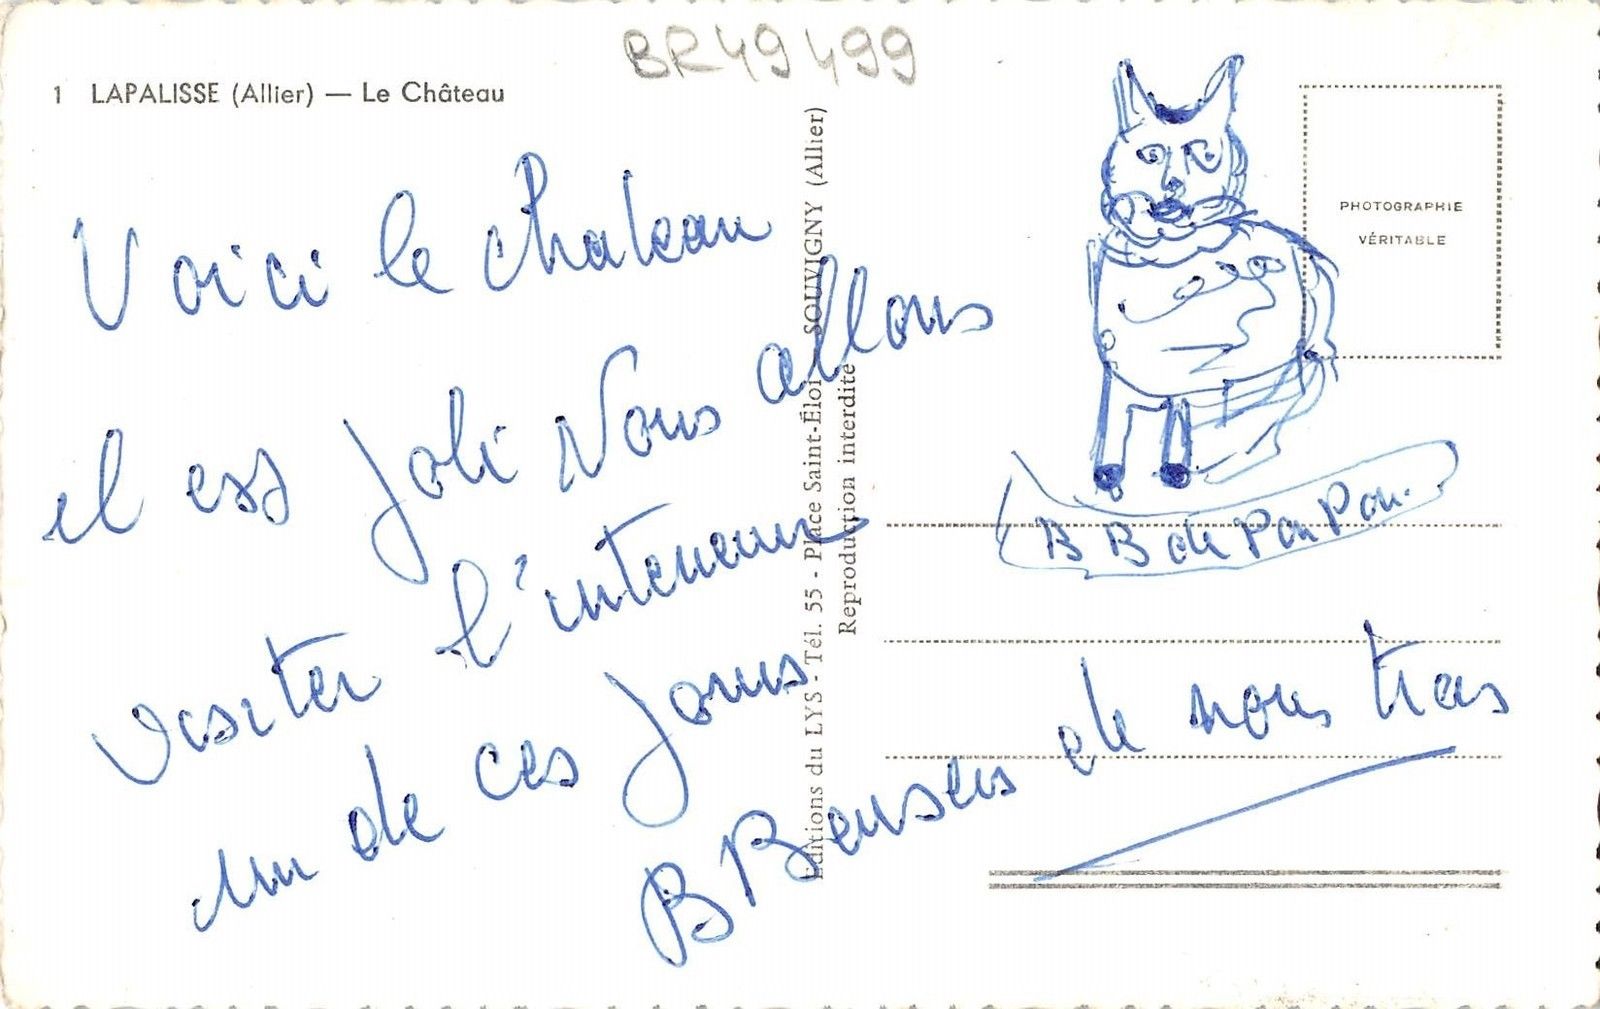 BR49499
1 LAPALISSE (Allier) — Le Château
Voici le chateau
il est joli Nous allons
visiter l'interieur
un de ces jours
B Bensers de nous trois
Editions du LYS - Tél. 55 - Place Saint-Éloi - SOUVIGNY (Allier)
Reproduction interdite
PHOTOGRAPHIE
VÉRITABLE
B B de Pon Pon.